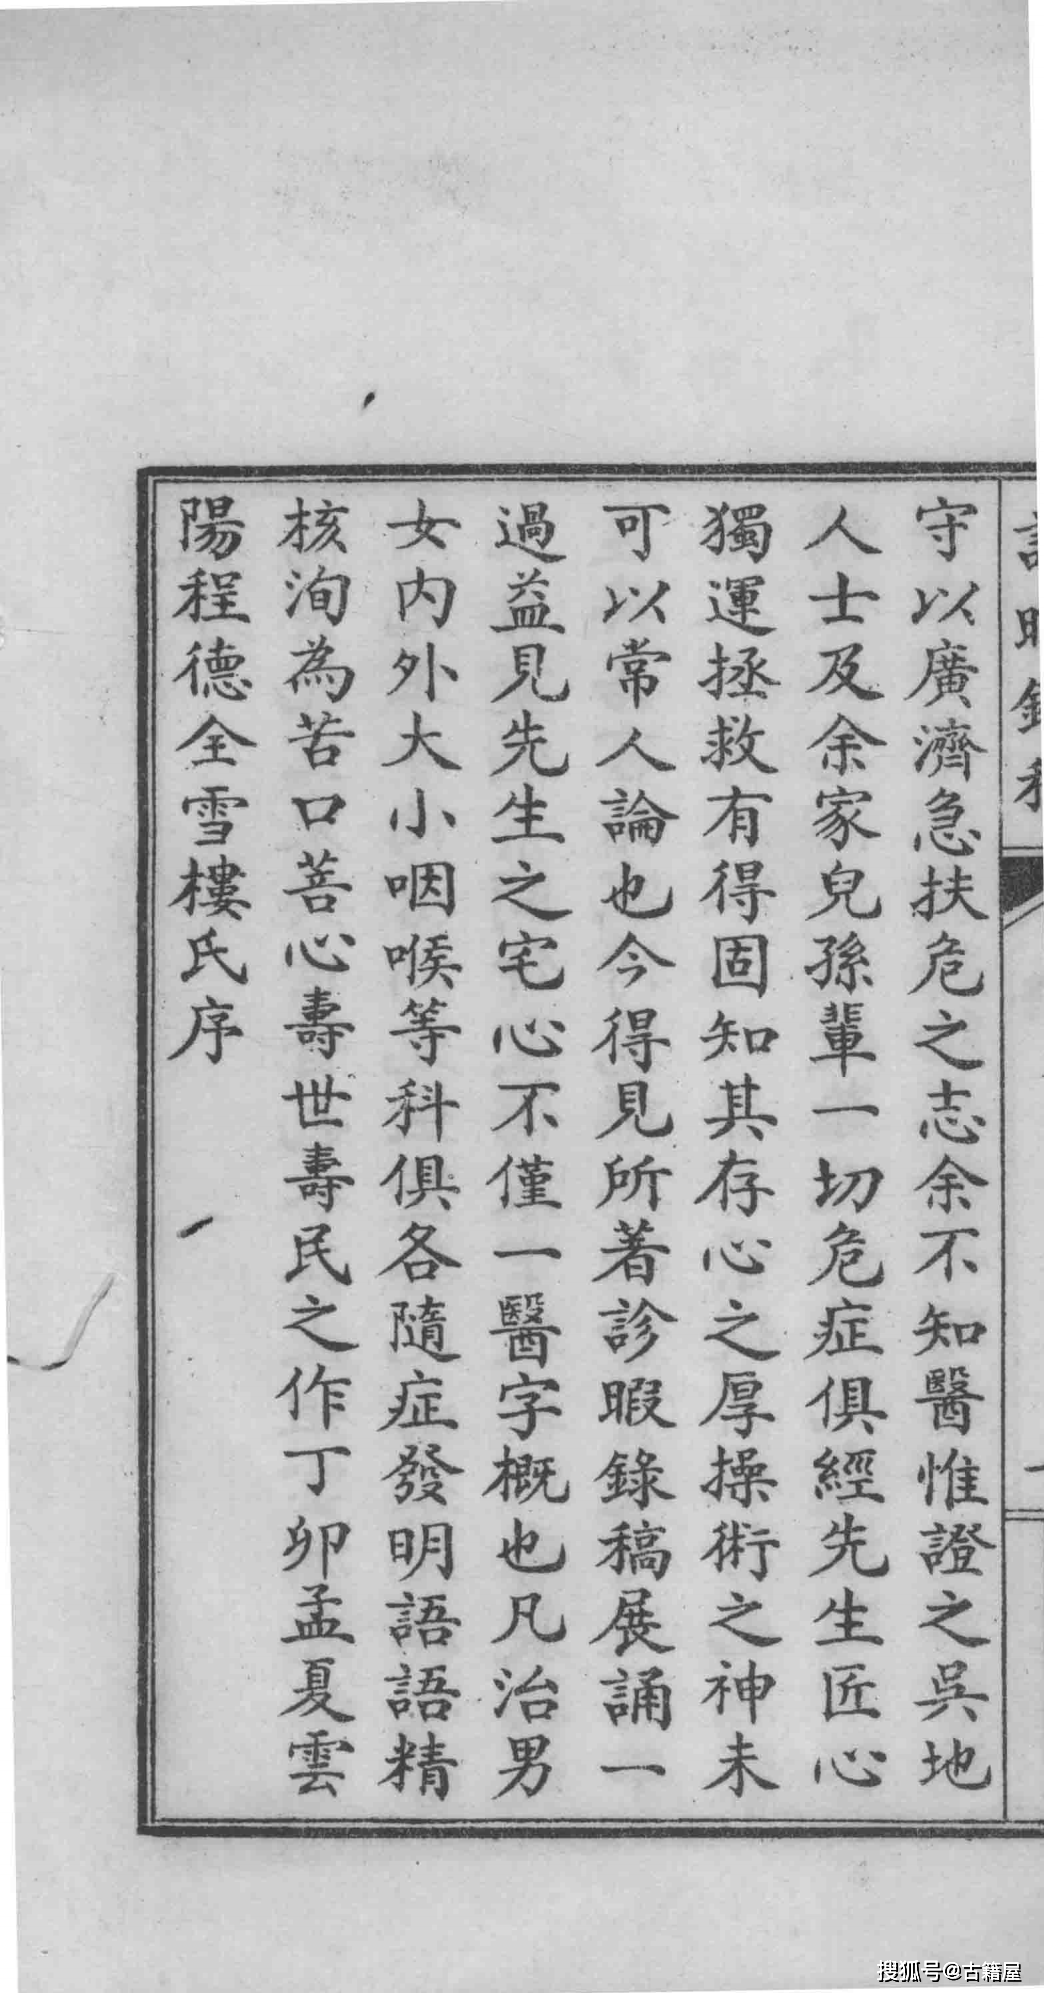 守以廣濟急扶危之志余不知醫惟證之吳地
人士及余家兒孫輩一切危症俱經先生匠心
獨運拯救有得固知其存心之厚操術之神未
可以常人論也今得見所著診暇錄稿展誦一
過益見先生之宅心不僅一醫字概也凡治男
女内外大小咽喉等科俱各隨症發明語語精
核洵為苦口菩心壽世壽民之作丁卯孟夏雲
陽程德全雪樓氏序
搜狐号@古籍屋